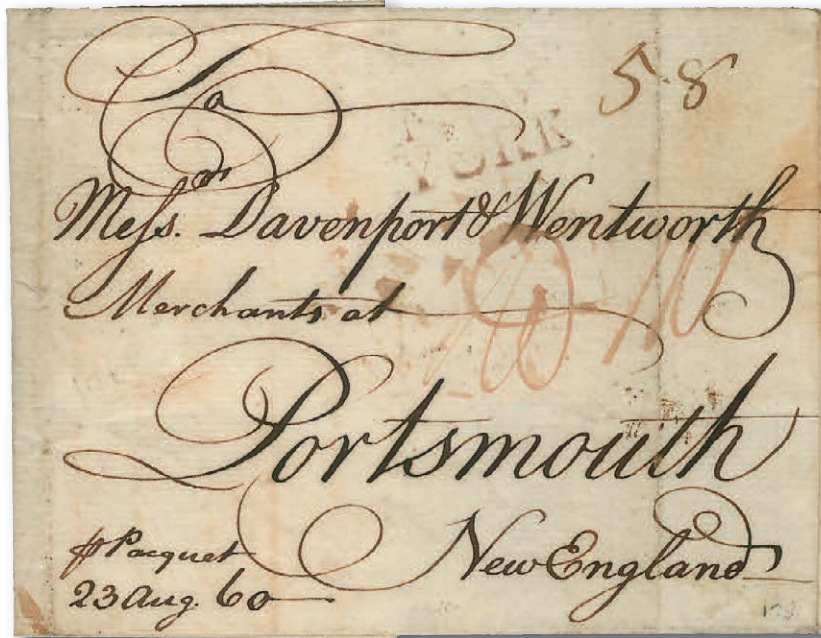 To
5·8
YORK
Messrs. Davenport & Wentworth
Merchants at
Portsmouth
New England
℔ Pacquet
23 Aug. 60